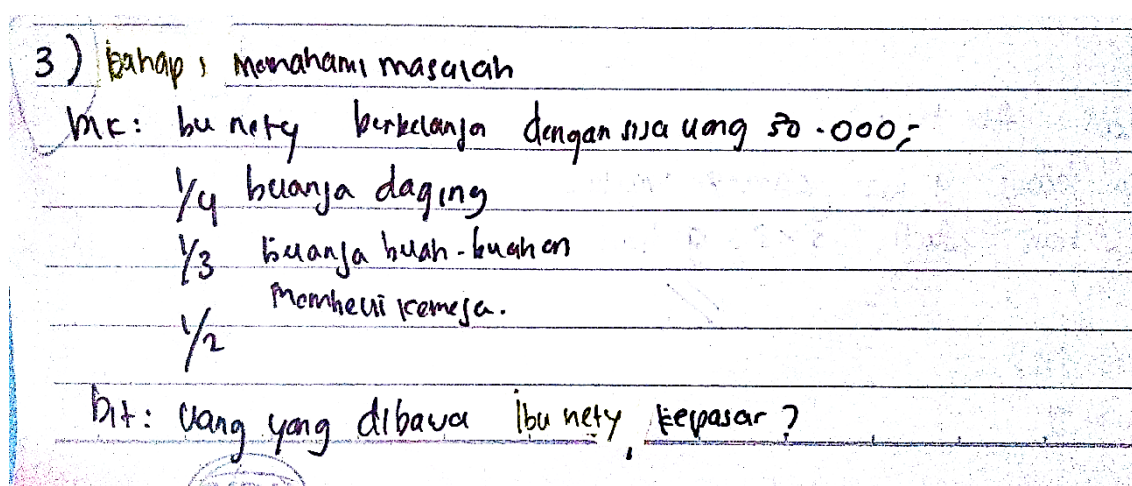 3) tahap : memahami masalah
DIK: bu nety berbelanja dengan sisa uang 50.000,-
1/4 belanja daging
1/3 belanja buah-buahan
1/2 Membeli kemeja.
Dit: Uang yang dibawa ibu nety kepasar ?